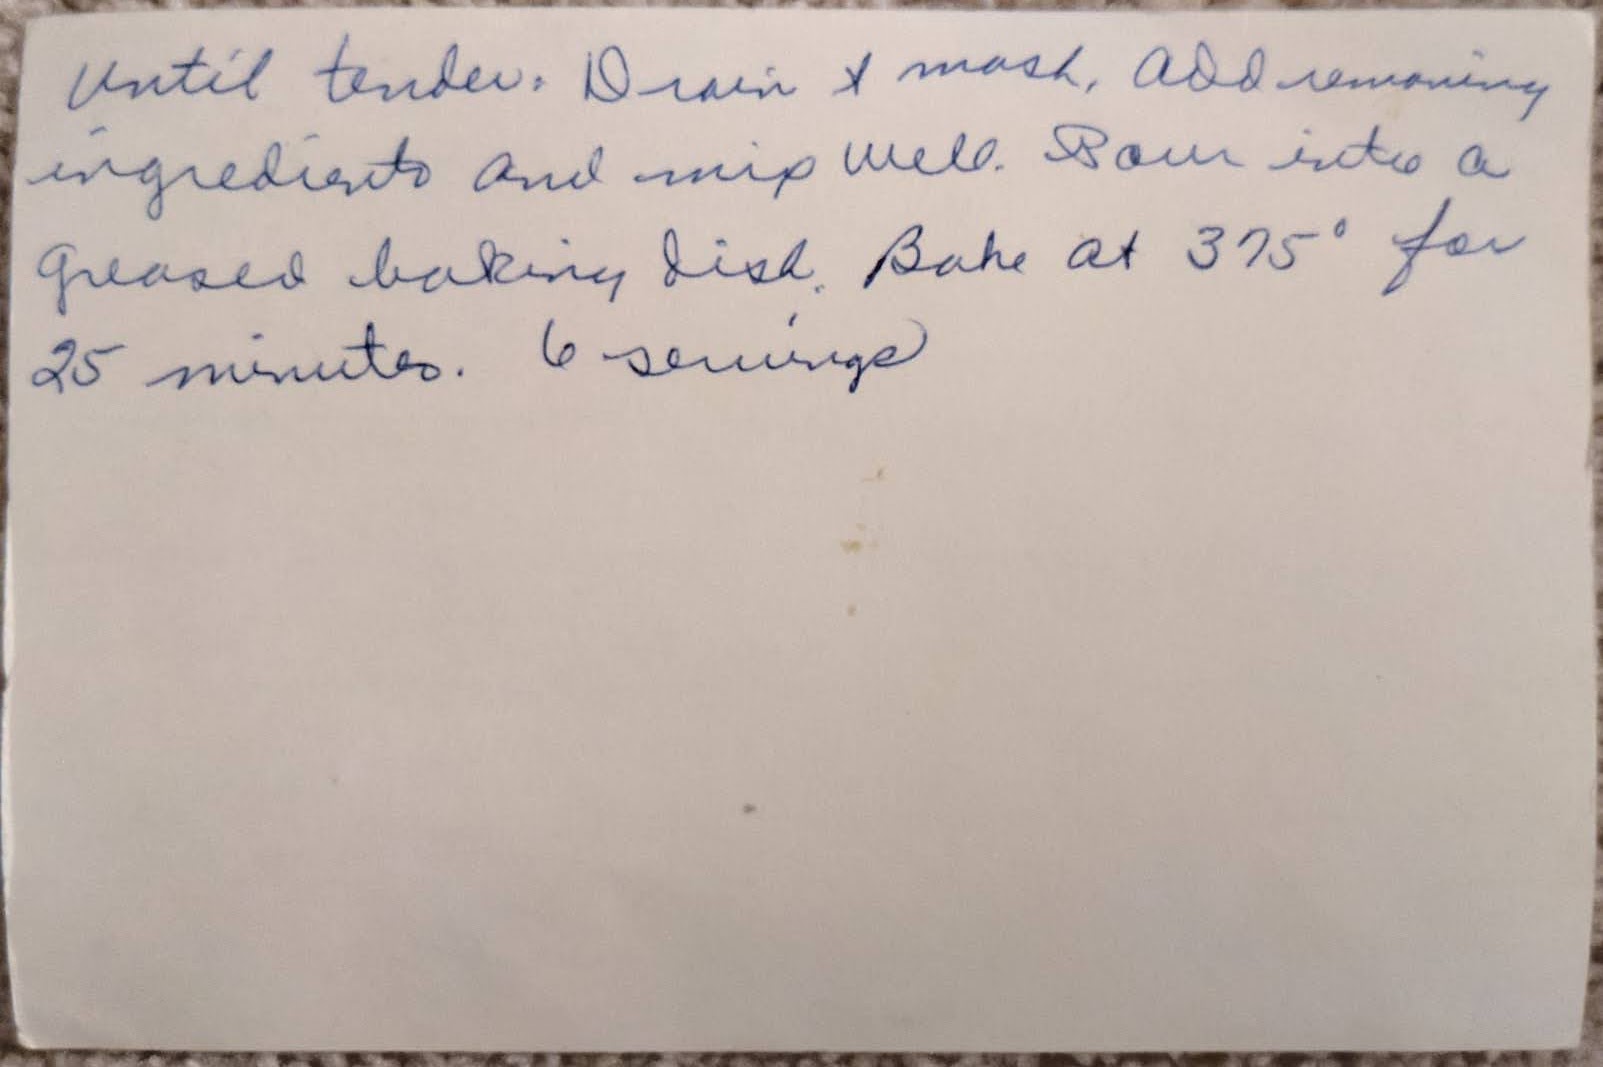 until tender. Drain & mash. Add remaining
ingredients and mix well. Pour into a
greased baking dish. Bake at 375° for
25 minutes. 6 servings